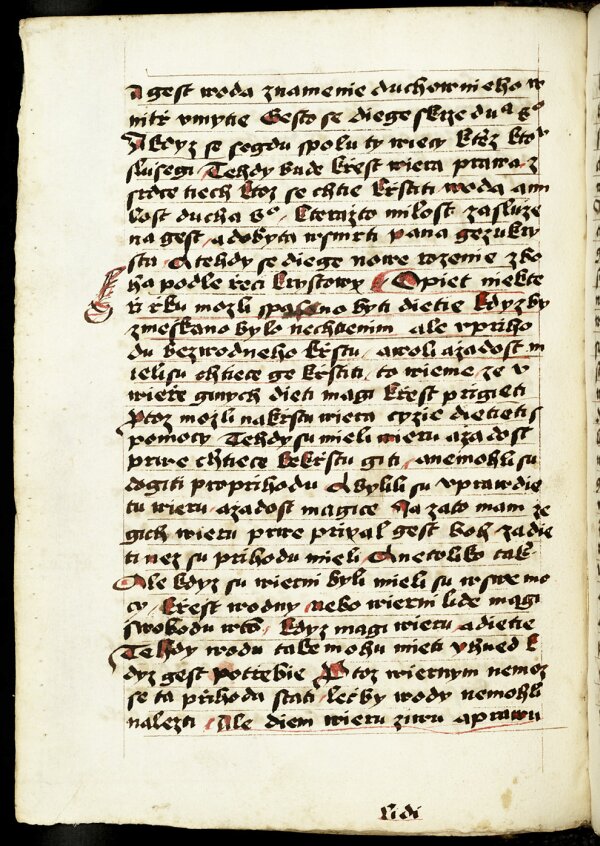 A gest woda znamenie duchownieho w
nitř vmytie Gesto se diege skrze duᵃ sᵒ
A kdyz se segdu spolu ty wiecy ktěz kto
slusegi Tehdy bude křest wiera prawa z
srdce tiech ktoz se chtie křstiti woda a mi
lost ducha sᵒ kterazto milost zasluze
na gest a dobyta w smrti pana gezu kry
sta A tehdy se diege nowe rozenie z bo
ha podle řeci krystowy Opiet niekte
ři řku mozli spaseno byti dietie kdyz by
zmeskano bylo nechtienim ale v přiho
du bezwodneho křstu a woli a zadost m
ieli su chtiece ge křstiti to wieme ze v
wieře ginych dieti magi křest prigieti
Ptoz mozli na křstu wiera cyzie dietieti s
pomocy Tehdy su mieli wieru a zadost
prwe chtiece ke křstu giti a nemohli su
dogiti pro přihodu A byli li su v prawdie
tu wieru a zadost magice Ja zato mam ze
gich wieru prwe prigal gest boh za die
ti nez su přihodu mieli A netoliko tak
Ale kdyz su wierni byli mieli su w swe mo
cy křest wodny nebo wierni lide magi
swobodu w tō kdyz magi wieru a dietie
Tehdy wodu take mohu mieti v hned k
dyz gest potřebie Ptoz wiernym nemoz
se ta přihoda stati lec by wody nemohli
nalezti Ale diem wieru ziwu a prawu
lidi